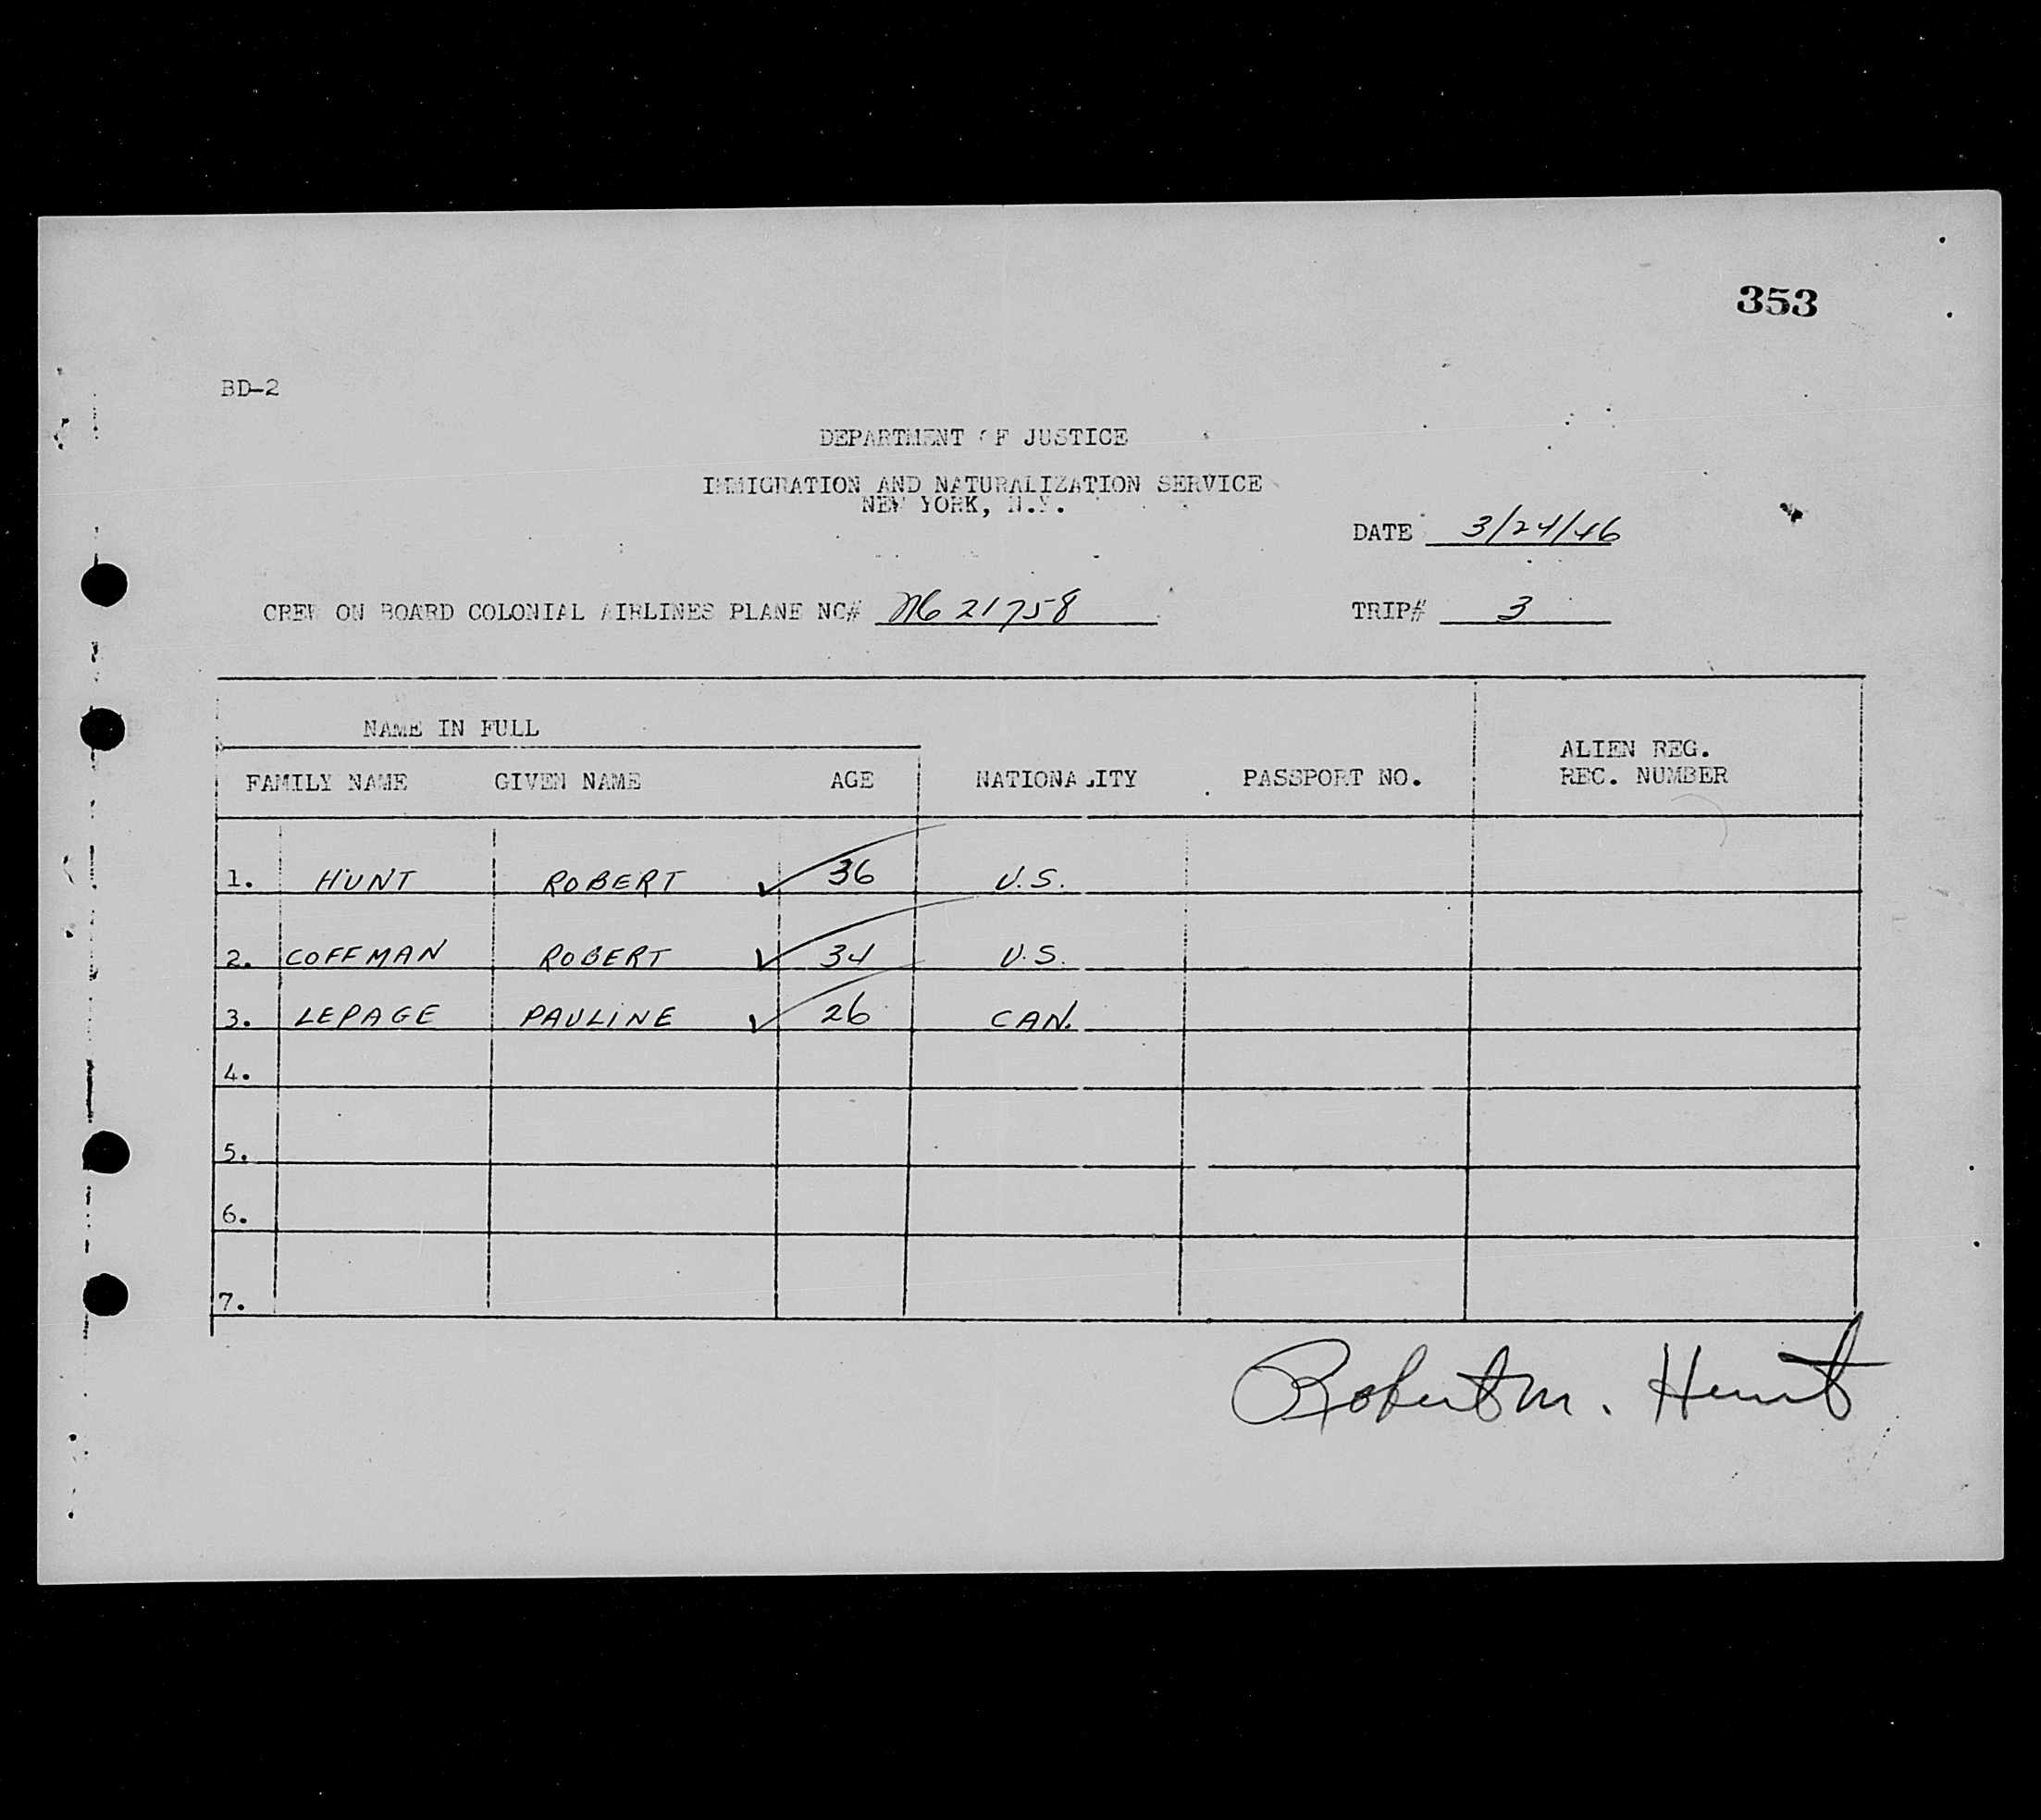 353
BD-2
DEPARTMENT OF JUSTICE
IMMIGRATION AND NATURALIZATION SERVICE
NEW YORK, N.Y.
DATE 3/24/46
CREW ON BOARD COLONIAL AIRLINES PLANE NC# NC 21758
TRIP# 3
NAME IN FULL
FAMILY NAME GIVEN NAME AGE NATIONALITY PASSPORT NO. ALIEN REG. REC. NUMBER
1. HUNT ROBERT ✓ 36 U.S.
2. COFFMAN ROBERT ✓ 34 U.S.
3. LEPAGE PAULINE ✓ 26 CAN.
4.
5.
6.
7.
Robert M. Hunt